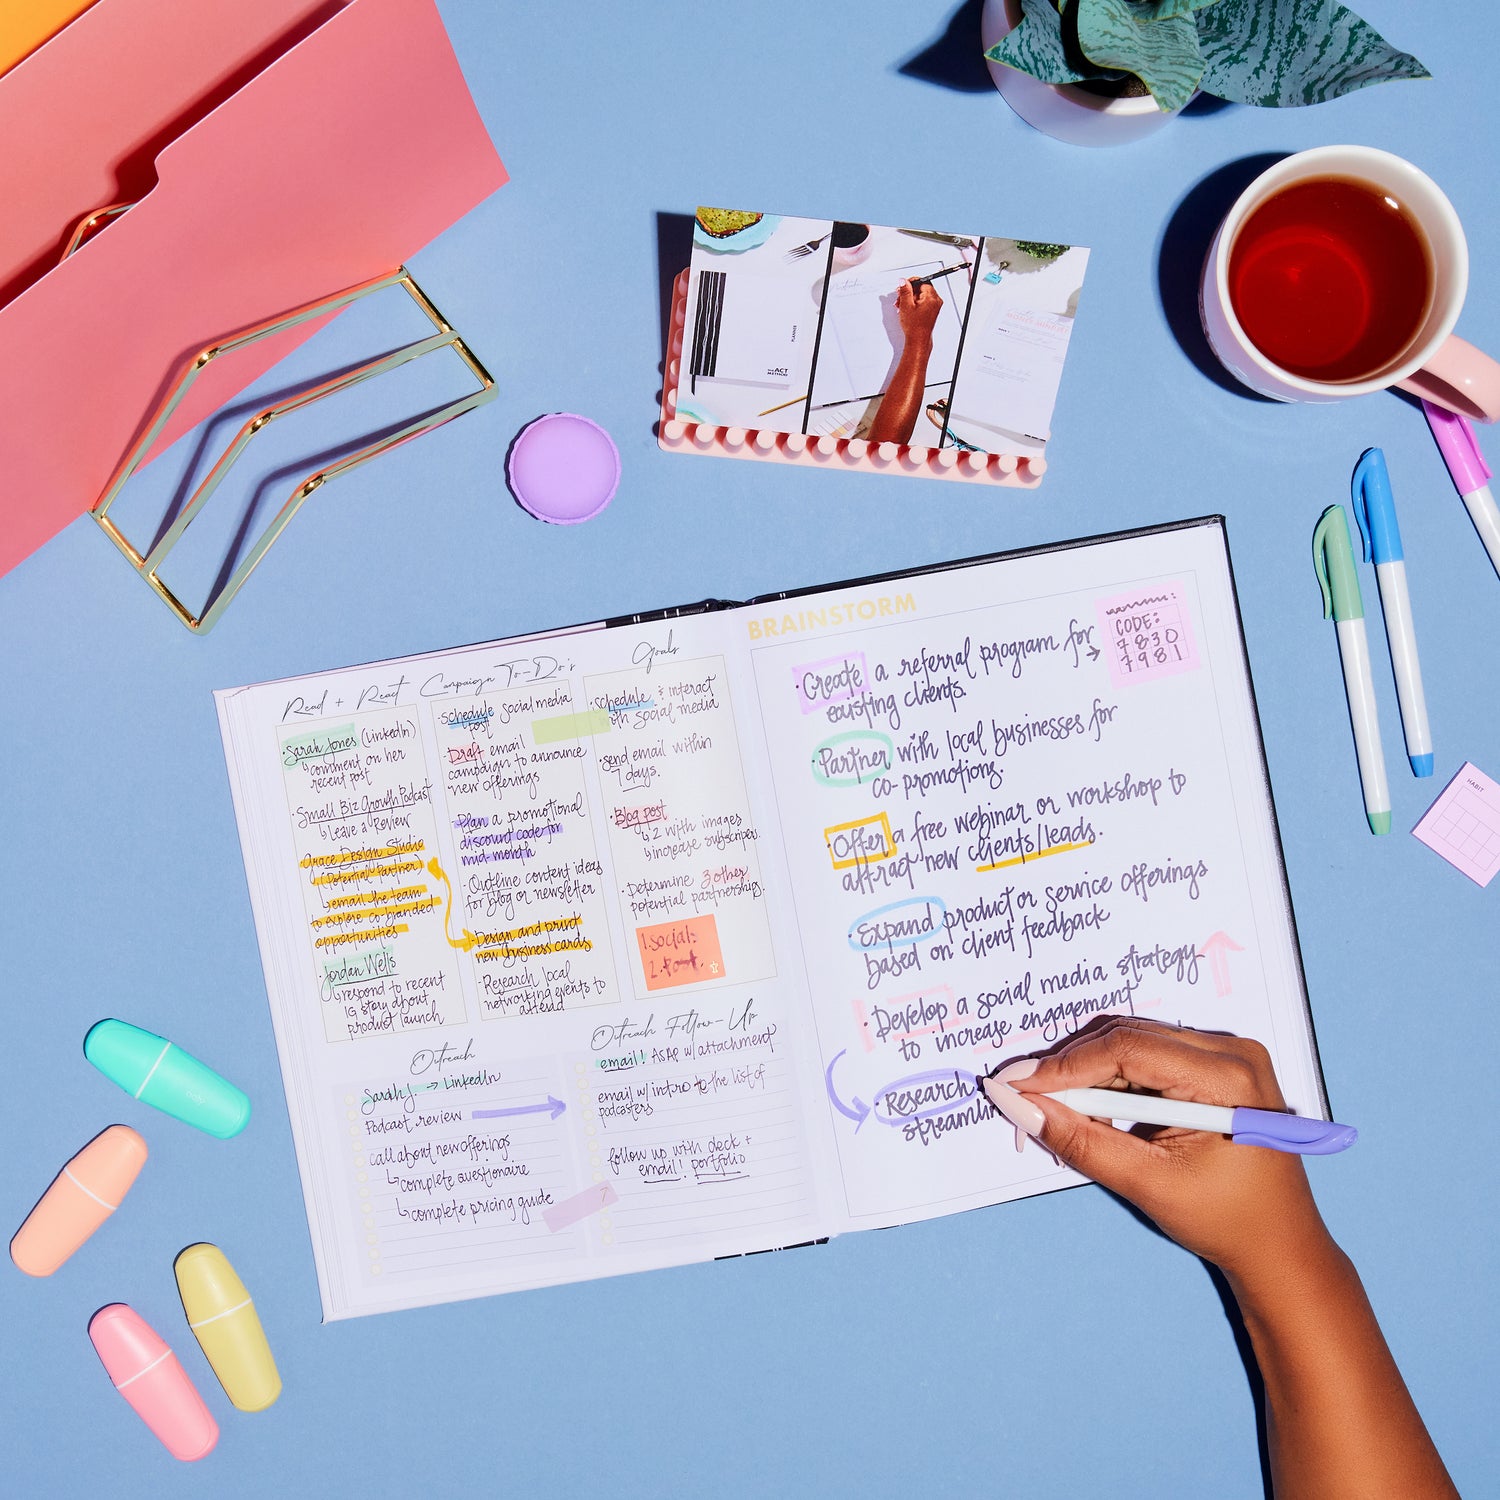 PLANNER
THE ACT
METHOD
HABIT
Read + React
·Sarah Jones (LinkedIn)
↳comment on her
recent post
·Small Biz Growth Podcast
↳Leave a Review
·Grace Design Studio
(Potential Partner)
↳email the team
to explore co-branded
opportunities
·Jordan Wells
↳respond to recent
IG story about
product launch
Campaign To-Do's
·schedule social media
post
·Draft email
campaign to announce
new offerings
·Plan a promotional
discount code for
mid-month
·Outline content ideas
for blog or newsletter
·Design and print
new business cards
·Research local
networking events to
attend
Goals
·schedule & interact
with social media
·send email within
7 days.
·Blog post
↳2 with images
↳increase subscribers.
·Determine 3 other
potential partnership.
1. Social:
2. Post.
Outreach
Sarah J. → LinkedIn
Podcast review
call about new offerings
↳complete questionaire
↳complete pricing guide
Outreach Follow-Up
email! ASAP w/ attachment
email w/ intro to the list of
podcasters
follow up with deck +
email! portfolio
BRAINSTORM
·Create a referral program for →
existing clients.
CODE:
7830
7981
·Partner with local businesses for
co-promotions.
·Offer a free webinar or workshop to
attract new clients/leads.
·Expand product or service offerings
based on client feedback
·Develop a social media strategy
to increase engagement
·Research